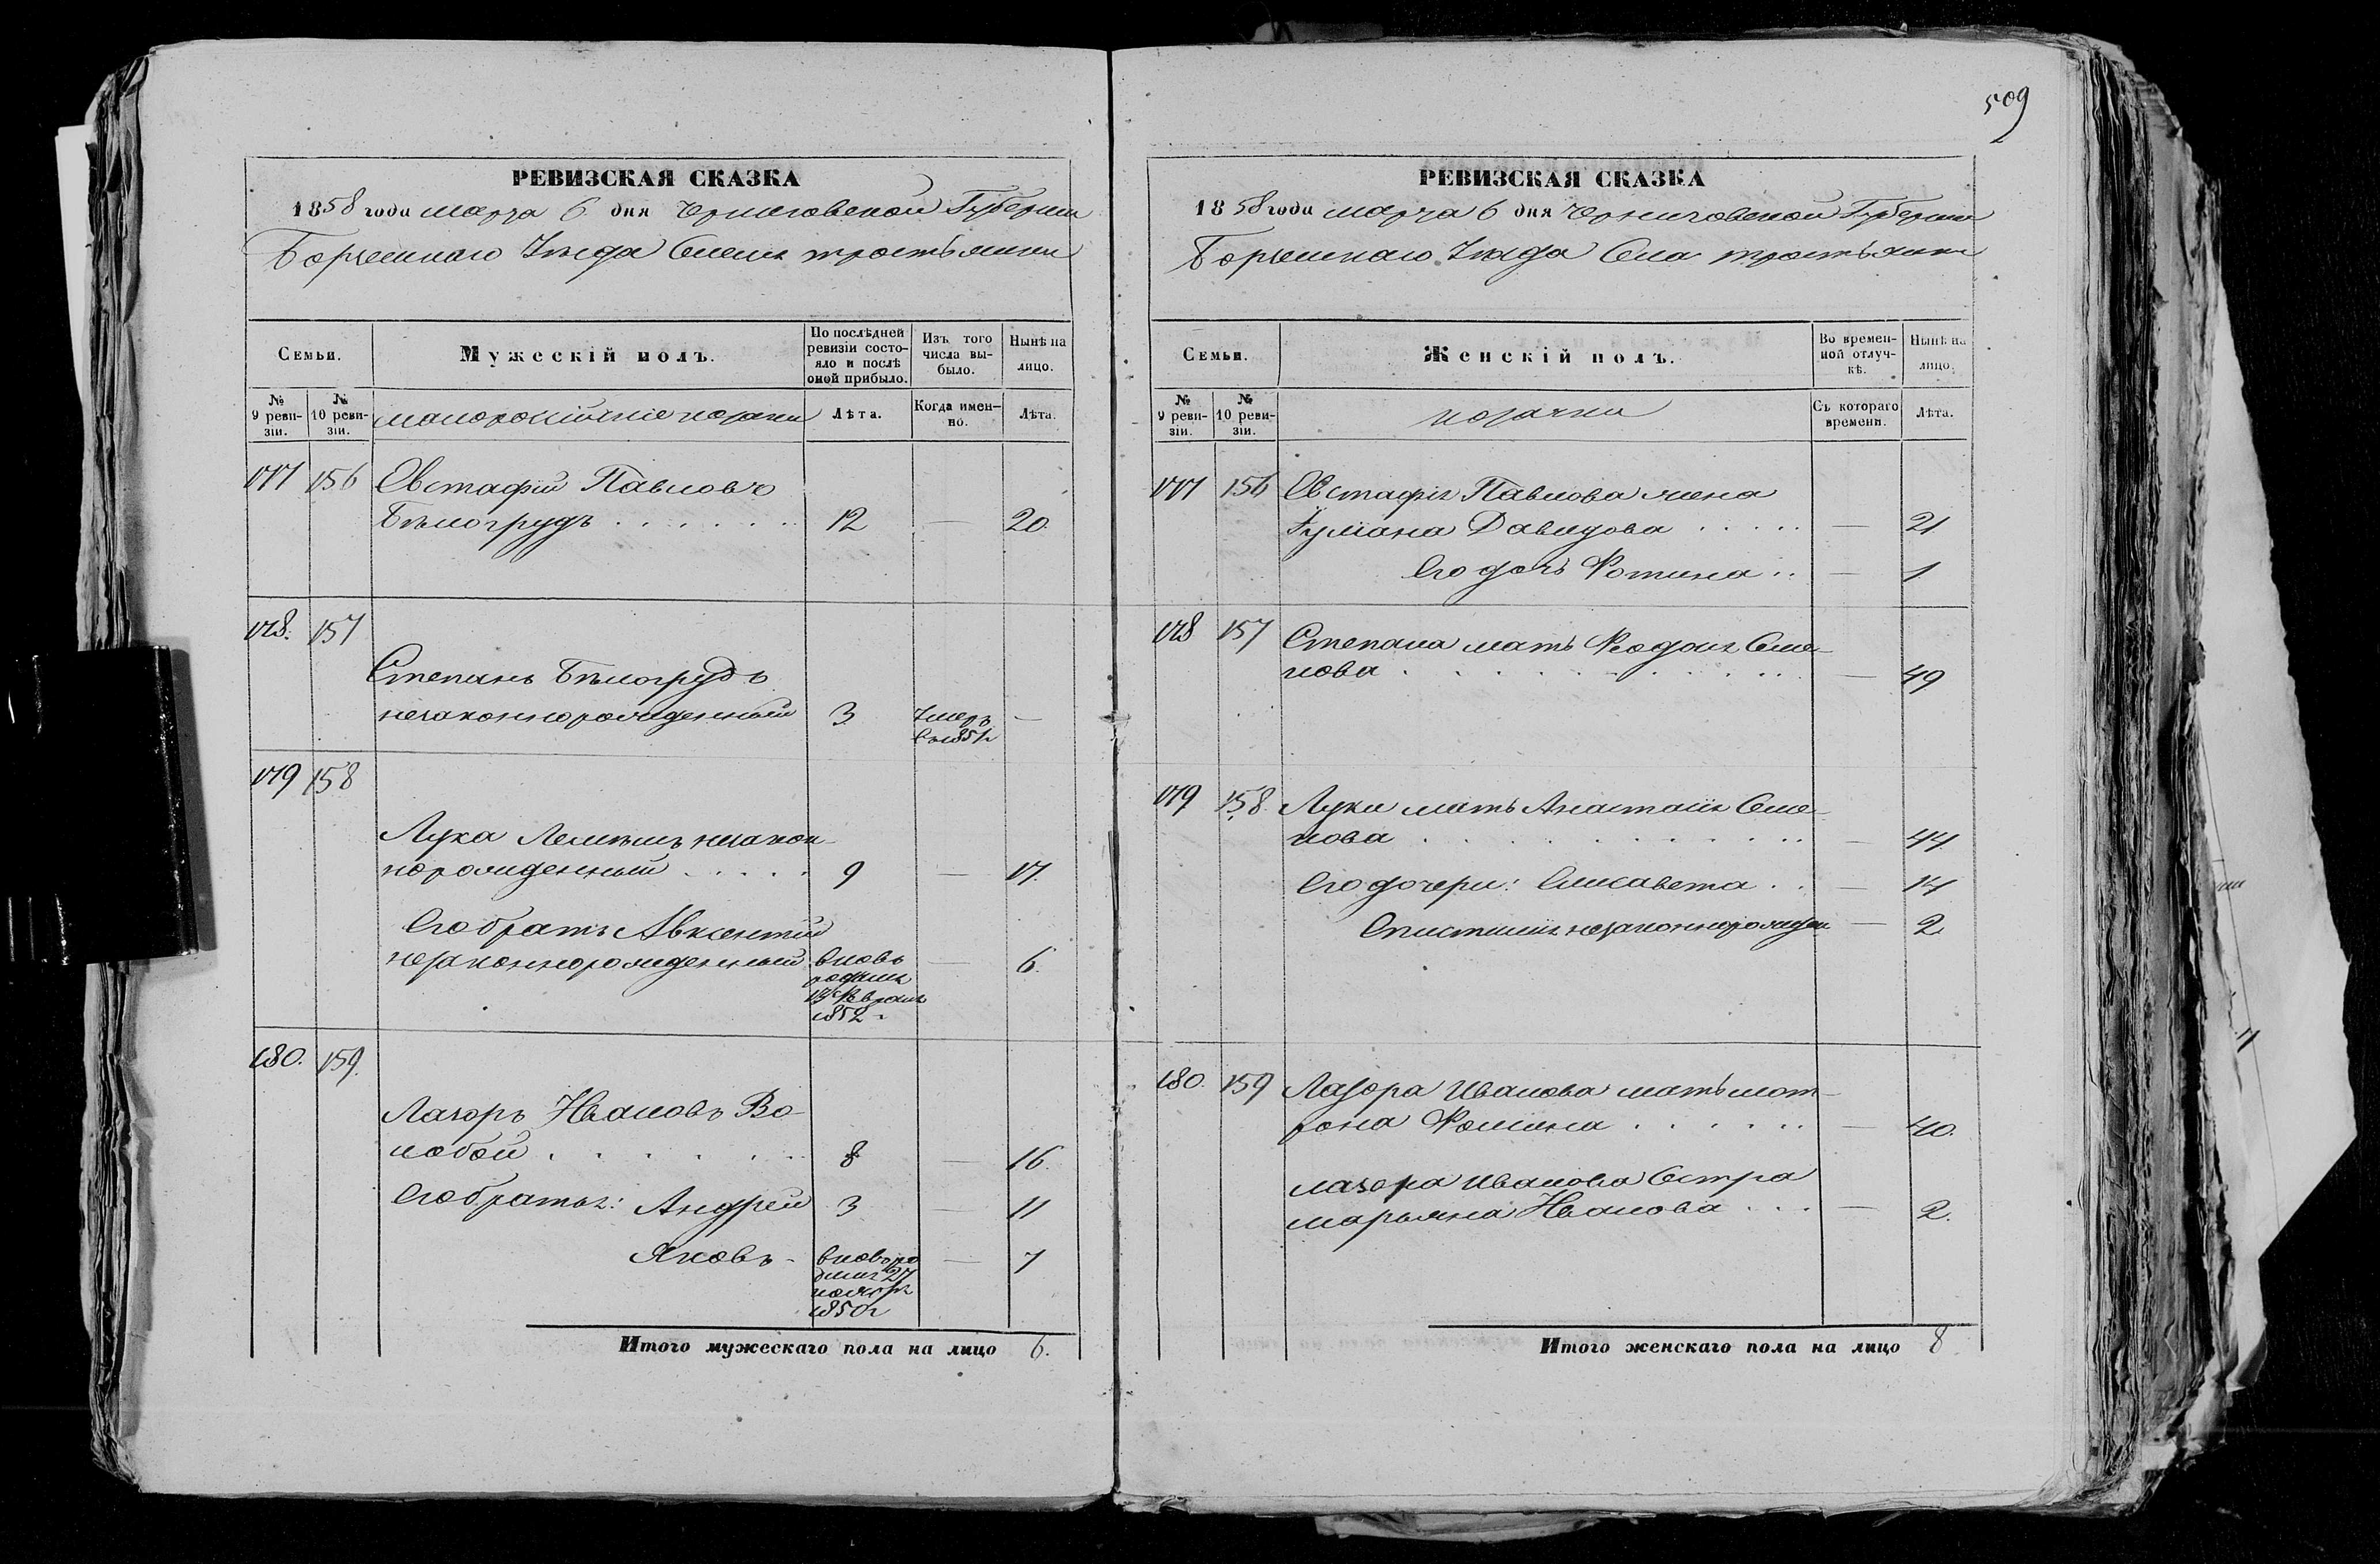 509
РЕВИЗСКАЯ СКАЗКА
1858 года марта 6 дня Черниговской Губернии
Борзенскаго Уѣзда Села Тростьянки
Семьи.
Мужескій полъ.
По послѣдней ревизіи состояло и послѣ оной прибыло.
Изъ того числа выбыло.
Нынѣ на лицо.
№ 9 ревизіи.
№ 10 ревизіи.
малороссійскіе козаки
Лѣта.
Когда именно.
Лѣта.
177 156 Евстафій Павловъ
Бѣлогрудъ . . . . . . 12 — 20.
178. 157
Степанъ Бѣлогрудъ
незаконнорожденный 3 Умеръ —
въ 1851г
179 158
Лука Лемѣшъ незакон-
норожденный . . . . . 9 — 17.
Его братъ Авксентій
незаконнорожденный вновь — 6.
родился
17 Февраля
1852.
180. 159.
Лазоръ Ивановъ Во-
лобой . . . . . . 8 — 16.
Его братья: Андрей 3 — 11
Яковъ - вновь ро — 7
дился 27
ноябр
1850г
Итого мужескаго пола на лицо 6.
РЕВИЗСКАЯ СКАЗКА
1858 года марта 6 дня Черниговской Губернии
Борзенскаго Уѣзда Села Тростьянки
Семьи.
Женскій полъ.
Во временной отлучкѣ.
Нынѣ на лицо.
№ 9 ревизіи.
№ 10 ревизіи.
козачки
Съ котораго времени.
Лѣта.
177 156 Евстафія Павлова жена
Ульяна Давидова . . . . . — 21.
Его дочь Фотина . . — 1
178 157 Степана мать Феодосія Семе-
нова . . . . . . . . — 49
179 158. Луки мать Анастасія Семе-
нова . . . . . . . . — 44
Его дочери: Елисавета . . — 14
незаконнорожден — 2
180. 159 Лазора Иванова мать Мот-
рона Фомина . . . . . . — 40.
Лазора Иванова сестра
Марьяна Иванова . . . — 2.
Итого женскаго пола на лицо 8